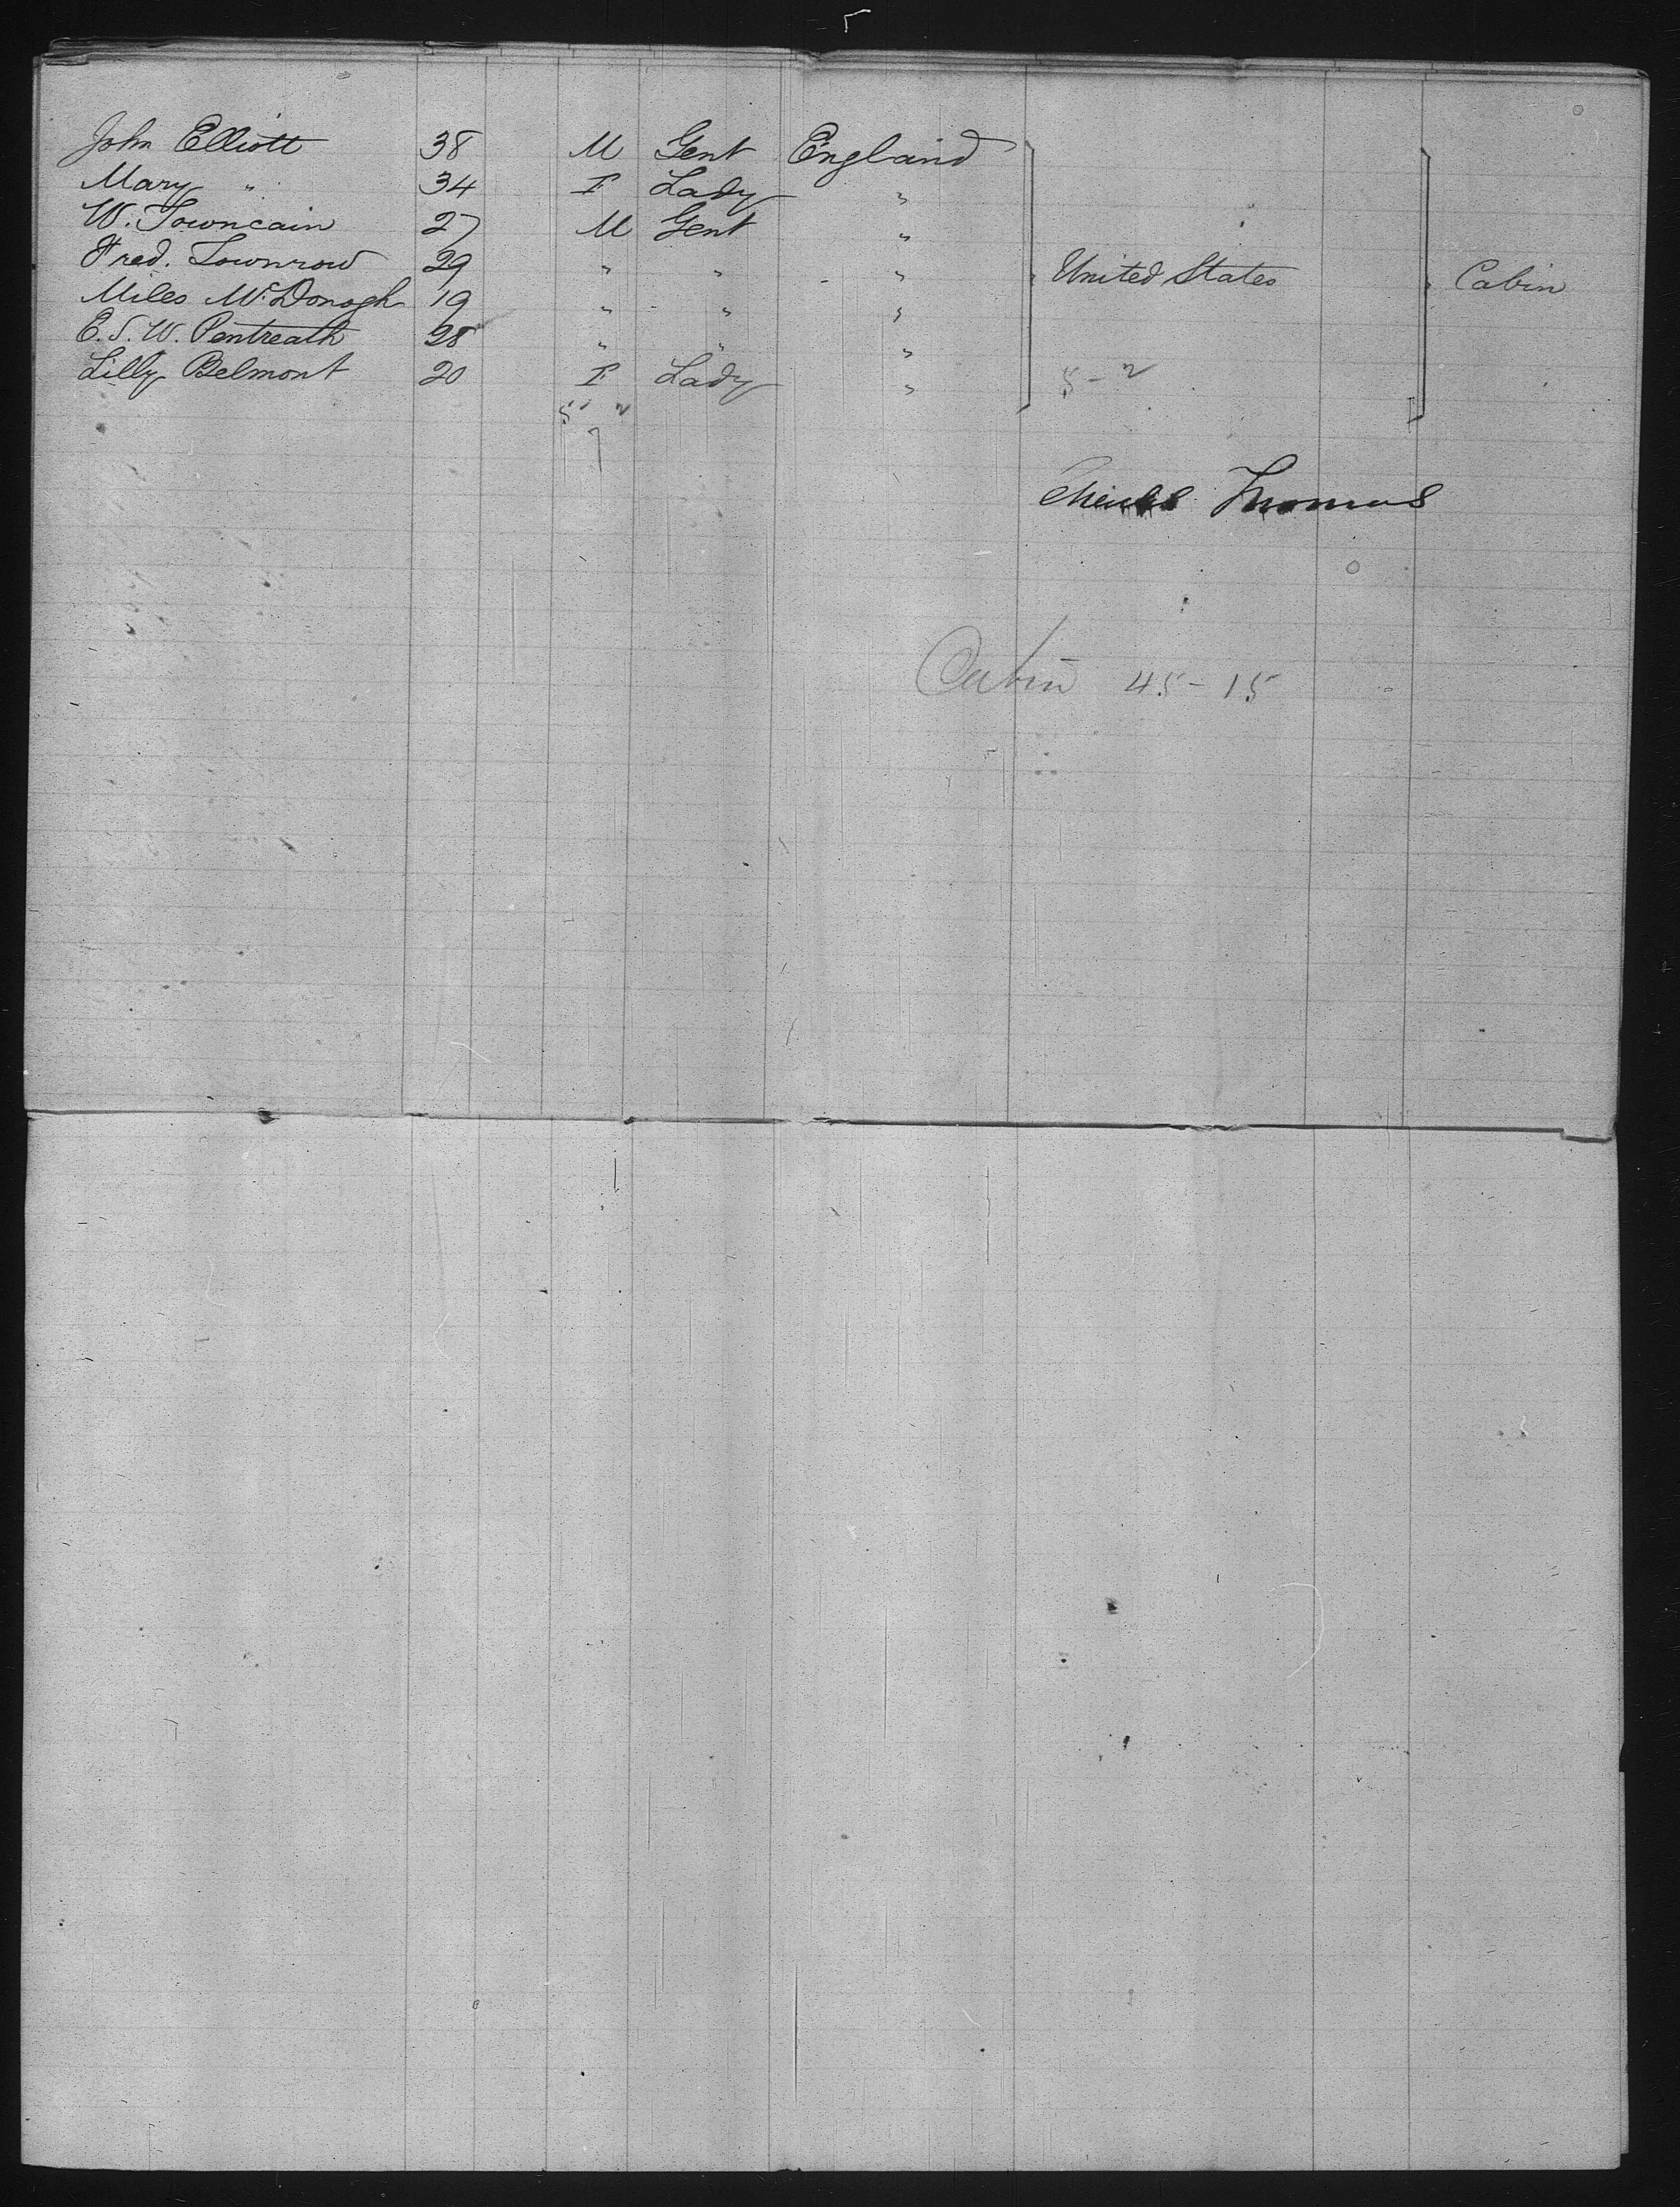 John Elliott 38 M Gent England
Mary " 34 F Lady "
W. Towncain 27 M Gent "
Fred. Townrow 29 " " "
United States Cabin
Miles McDonogh 19 " " "
E. S. W. Pentreath 28 " " "
Lilly Belmont 20 F Lady "
5 - 2
5 2
7
Thomas
Cabin 45 - 15